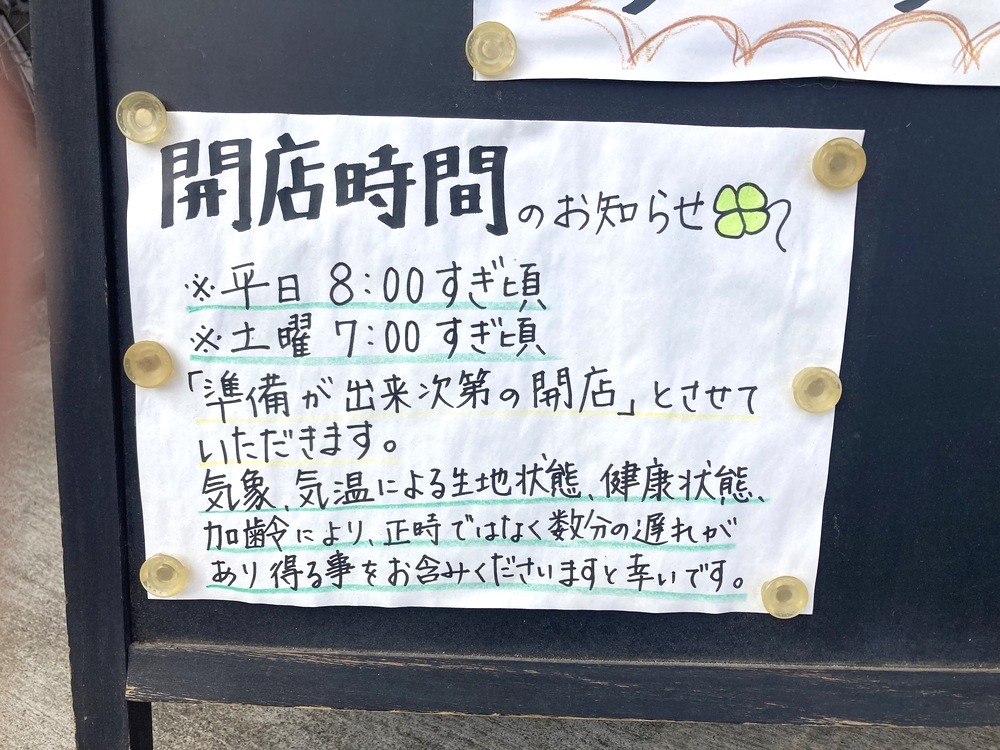 開店時間のお知らせ
※平日 8:00すぎ頃
※土曜 7:00すぎ頃
「準備が出来次第の開店」とさせて
いただきます。
気象、気温による生地状態、健康状態、
加齢により、正時ではなく数分の遅れが
あり得る事をお含みくださいますと幸いです。